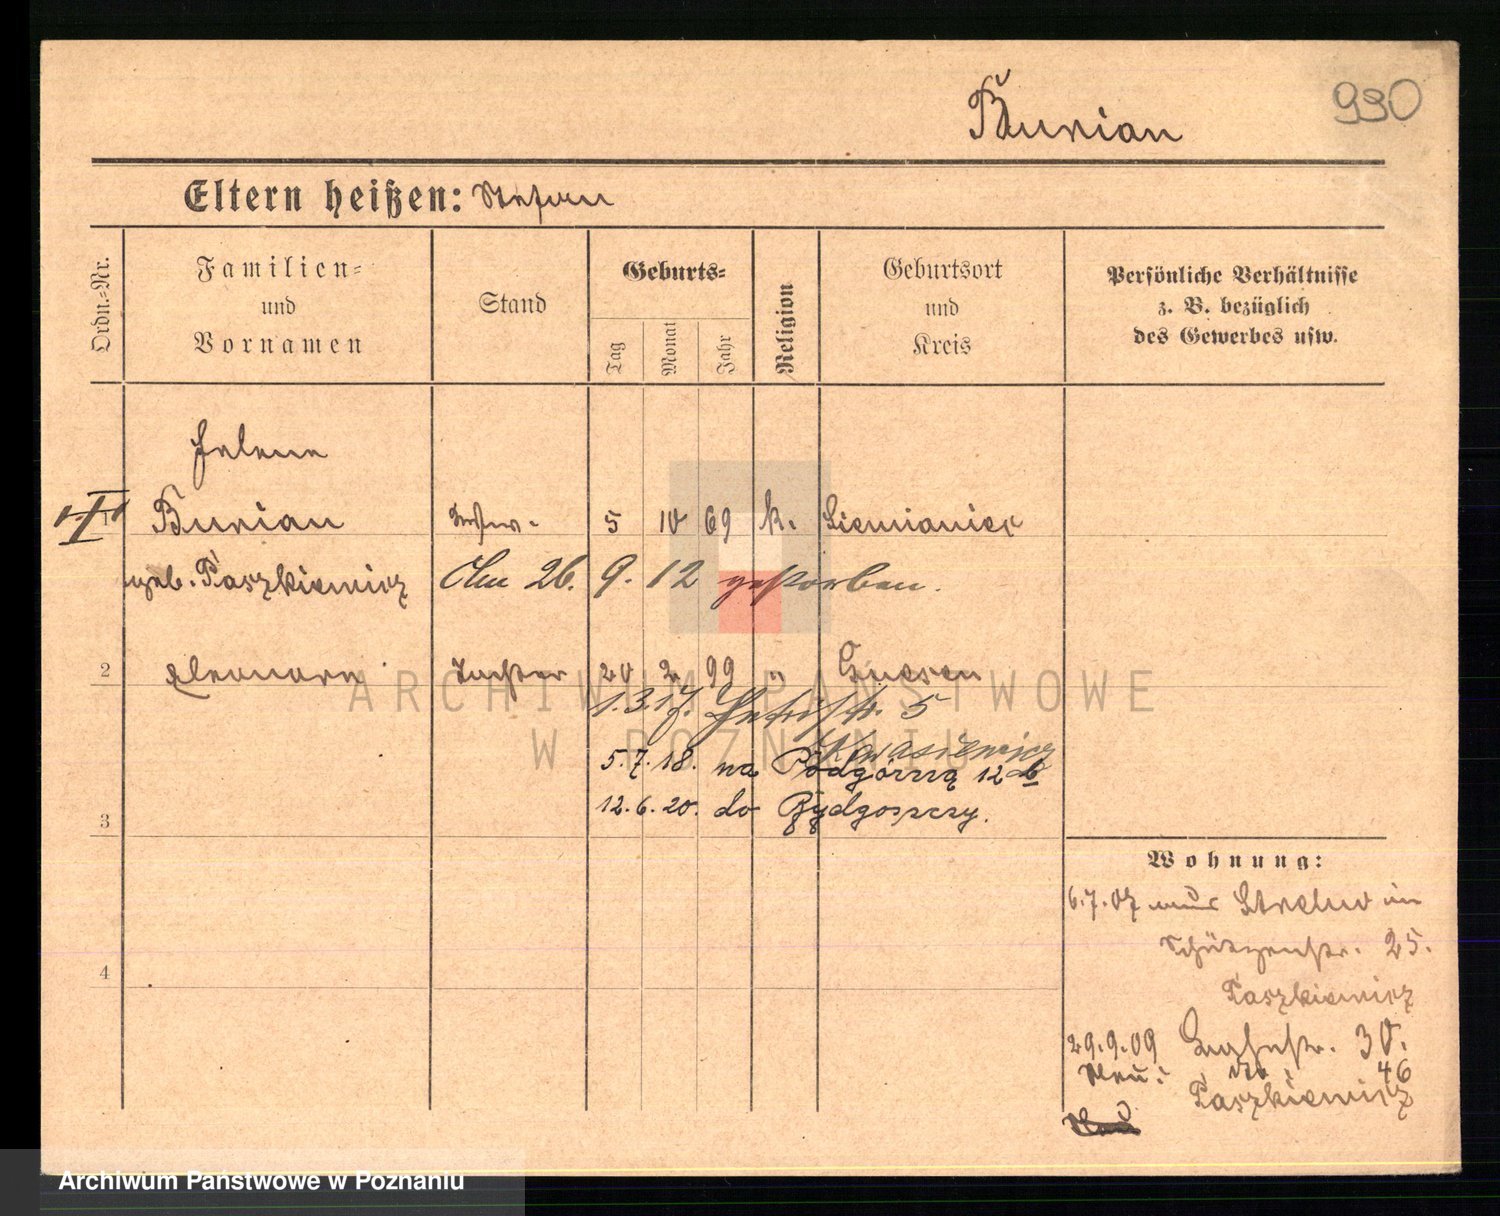 930
Burian
Eltern heißen: Stefan
Ordn.-Nr.
Familien-
und
Vornamen
Stand
Geburts-
Tag
Monat
Jahr
Religion
Geburtsort
und
Kreis
Persönliche Verhältnisse
z. B. bezüglich
des Gewerbes usw.
Helene
1 Burian Wtw. 5 10 69 k. Siemianice
geb. Paszkiewicz Am 26. 9. 12 gestorben.
2 Eleonore Tochter 20 2 99 " Gnesen
1.3.17. 5
5.7.18. na Podgórną 12b
3 12.6.20. do Bydgoszczy.
4
Wohnung:
6.7.07 aus Strelno in
Schützenstr. 25.
Paszkiewicz
29.9.09 30.
Neu: No 46
Paszkiewicz
ARCHIWUM PAŃSTWOWE
W POZNANIU
Archiwum Państwowe w Poznaniu